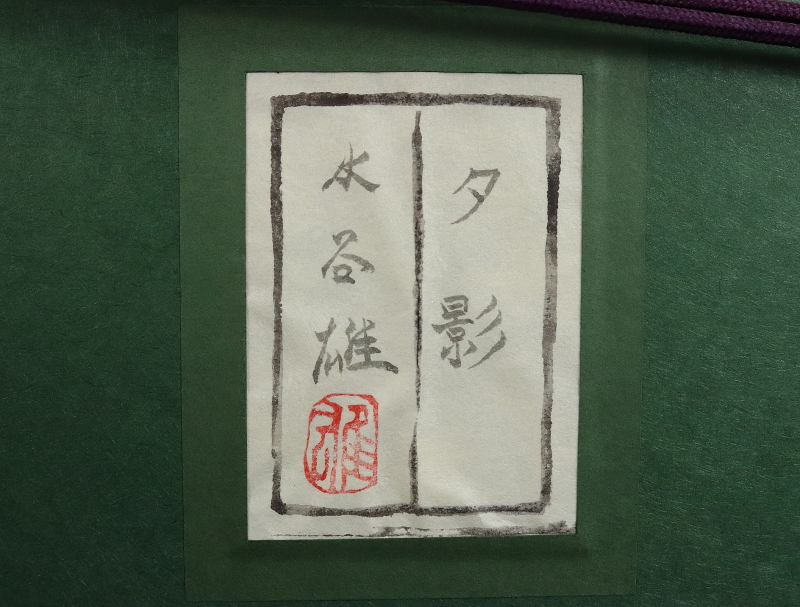 夕影
水谷雄
雄